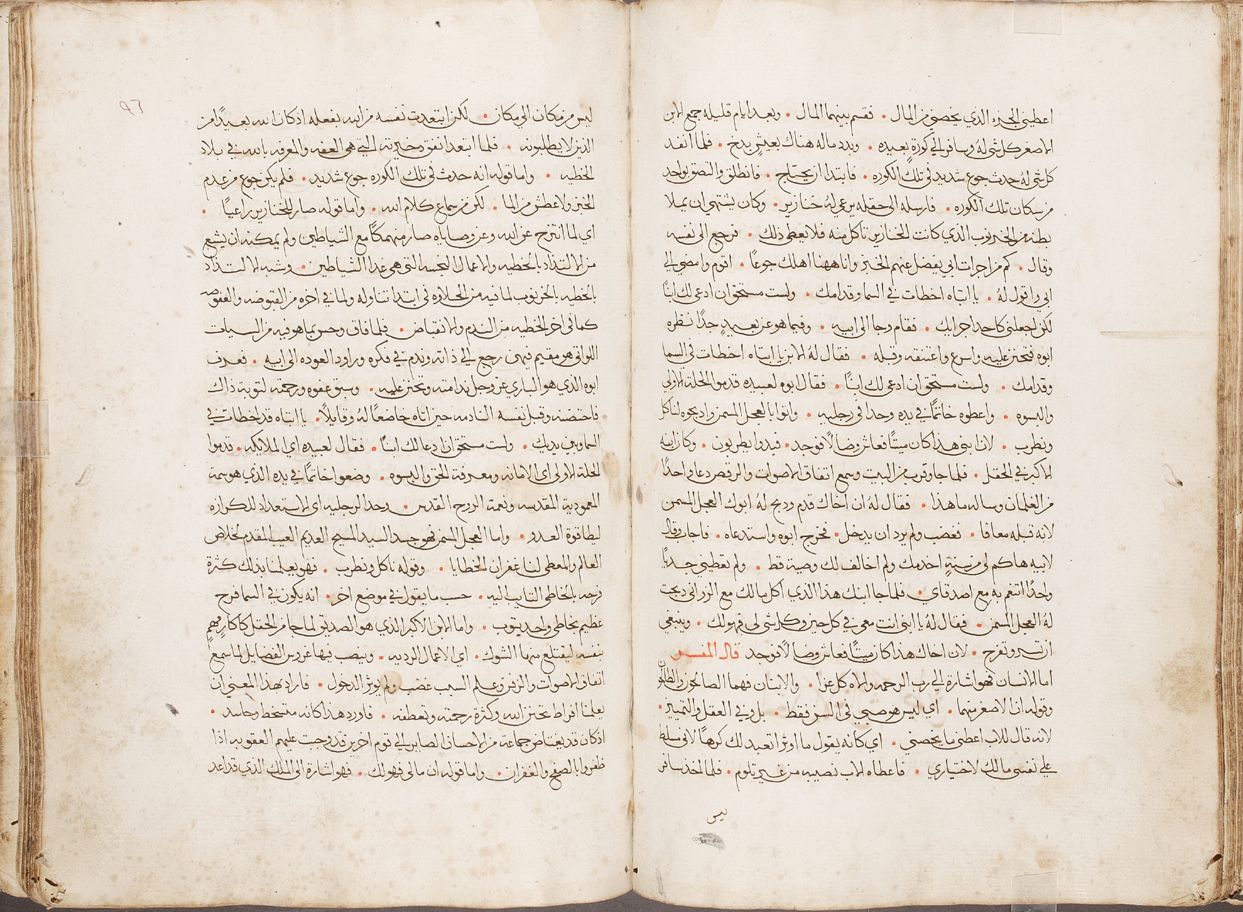 اعطيني الجزء الذي يخصني من المال • فقسم بينهما المال • وبعد ايام قليله جمع الابن
الاصغر كل شي له وسافر الى كورة بعيده • وبدد ماله هناك بعيش بدخ • فلما انفد
كل شي له حدث جوع شديد في تلك الكوره • فابتدا ان يحتاج • فانطلق والتصق بواحد
من سكان تلك الكوره • فارسله الى حقله يرعى له خنازير • وكان يشتهي ان يملا
بطنه من الخرنوب الذي كانت الخنازير تاكل منه فلا يعطى ذلك • فرجع الى نفسه
وقال • كم من اجرات ابي يفضل عنهم الخبز وانا ههنا اهلك جوعًا • اقوم وامضي الى
ابي واقول له • يا ابتاه اخطات في السما وقدامك • ولست مستحق ان ادعى لك ابنًا
لكن اجعلني كاحد اجرايك • فقام وجا الى ابيه • وفيما هو عن بعيد جدًا نظره
ابوه فتحنن عليه واسرع واعتنقه وقبله • فقال له الابن يا ابتاه اخطات في السما
وقدامك • ولست مستحق ان ادعى لك ابنًا • فقال ابوه لعبيده قدموا الحلة الاولى
والبسوه • واعطوه خاتمًا في يده وحدا في رجليه • واتوا بالعجل المسمن واذبحوه لناكل
ونطرب • لان ابني هذا كان ميتًا فعاش وضالًا فوجد • فبدوا يطربون • وكان ابنه
الاكبر في الحقل • فلما جا وقرب من البيت وسمع اتفاق الاصوات والرقص دعا واحدًا
من الغلمان وساله ما هذا • فقال له ان اخاك قدم وذبح له ابوك العجل المسمن
لانه قبله معافا • فغضب ولم يرد ان يدخل • فخرج ابوه واستدعاه • فاجاب وقال
لابيه هاكم لي من سنةٍ اخدمك ولم اخالف لك وصية قط • ولم تعطيني جديًا
واحدًا اتنعم به مع اصدقاي • فلما جا ابنك هذا الذي اكل مالك مع الزواني ذبحت
له العجل المسمن • فقال له يا ابني انت معي في كل حين وكل شي لي فهو لك • وينبغي
ان تسر وتفرح • لان اخاك هذا كان ميتًا فعاش وضالًا فوجد قال المفسر
اما الانسان فهو اشارة الى رب الرحمه والاه كل عزا • والابنان فهما الصالحون والطالحون
وقوله ان الاصغر منهما • اي ليس هو صبي في السن فقط • بل وفي العقل والتمييز •
لانه قال للاب اعطني ما يخصني • اي كانه يقول ما اوثر اتعبد لك كرهًا لانني مسلط
على نفسي مالك لاختياري • فاعطاه الاب نصيبه من غير تلوم • فلما اخد سافر
ليس
٩٦
ليس من مكان الى مكان • لكن ابتعدت نفسه من الله بفعله اذ كان الله بعيدًا من
الذين لا يطلبونه • فلما ابتعد انفق دخيرته التي هي العفه والمعرفه بالله في بلاد
الخطيه • واما قوله انه حدث في تلك الكوره جوع شديد • فلم يكن جوع من عدم
الخبز ولا عطش من الما • لكن من سماع كلام الله • واما قوله صار للخنازير راعيًا •
اي لما انتزح عن الله وعن وصاياه صار منهمكًا مع الشياطين ولم يمكنه ان يشبع
من الالتداد بالخطيه والاعمال النجسه التي هي غدا الشياطين • وشبه الالتداد
بالخطيه بالخرنوب لما فيه من الحلاوه في ابتدا تناوله ولما في اخره من القبوضه والعفوصه
كما في اخر الخطيه من الندم والانقباض • فلما فاق وحس بما هو فيه من السيات
اللواتي هو مقيم فيهن رجع الى ذاته وندم في فكره وراود العوده الى ابيه • فعرف
ابوه الذي هو الباري عز وجل ندامته وتحنن عليه • وسبق عفوه ورحمته لتوبة ذاك
فاحتضنه وقبل نفسه النادمه حين اتاه خاضعًا له وقايلًا • يا ابتاه قد اخطات في
السما وبين يديك • ولست مستحق ان ادعا لك ابنًا • فقال لعبيده اي الملايكه • قدموا
الحلة الاولى اي الامانه ومعرفة الحق والبسوه • وضعوا خاتمًا في يده الذي هو سمة
المعمودية المقدسه ونعمة الروح القدس • وحدا لرجليه اي الاستعداد للكرازه
لبطا قوة العدو • واما العجل المسمن فهو جسد السيد المسيح العديم العيب المقدم لخلاص
العالم والمعطى لنا غفران الخطايا • وقوله ناكل ونطرب • فهو يعلمنا بذلك كثرة
فرحه بالخاطي التايب اليه • حسب ما يقول في موضع اخر • انه يكون في السما فرح
عظيم بخاطي واحد يتوب • واما الابن الاكبر الذي هو الصديق لما جا من الحقل كما كان فيهم
بنفسه ليقتلع منها الشوك • اي الاعمال الرديه • وينصب فيها غروس الفضايل لما سمع
اتفاق الاصوات والزفن وعلم السبب غضب ولم يوثر الدخول • فاراد بهذا المعنى ان
يعلمنا افراط تحنن الله وكثرة رحمته وتعطفه • فاورد هذا كانه متسخط وحاسد •
اذ كان قد يغتاض جماعة من الاحسان الصاير الى قوم اخرين قد وجبت عليهم العقوبه اذا
ظفروا بالصفح والغفران • واما قوله ان مالي فهو لك • فهو اشارة الى الملك الذي قد اعد